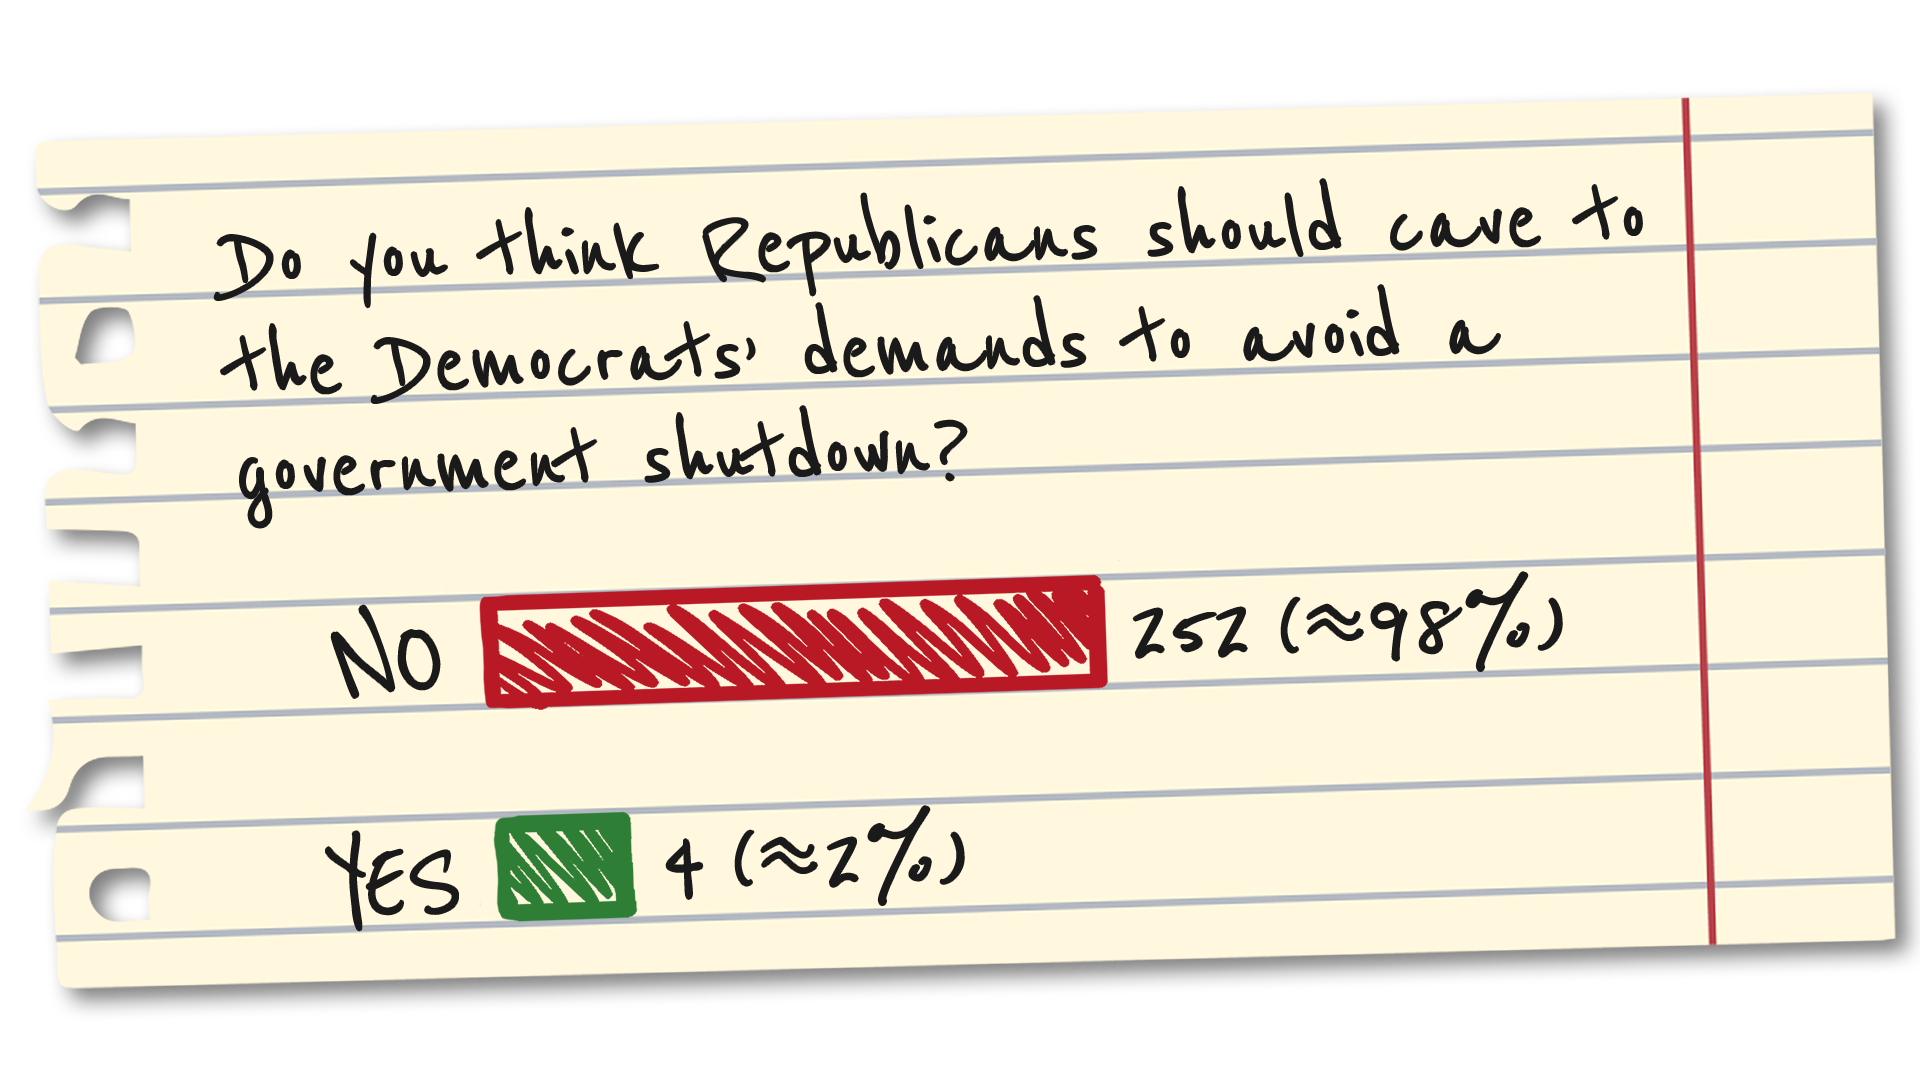 Do you think Republicans should cave to
the Democrats' demands to avoid a
government shutdown?
NO 252 (≈98%)
YES 4 (≈2%)